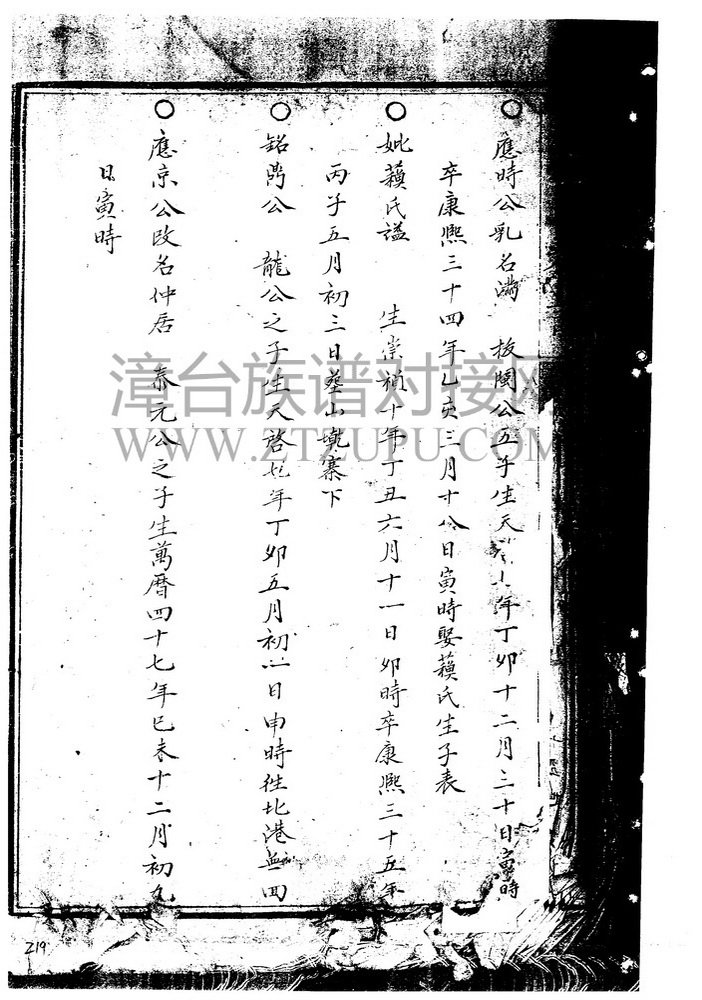 應時公乳名滿 拔閩公五子生天啓 年丁卯十二月三十日寅時
卒康熙三十四年乙亥三月十八日寅時娶蘋氏生子表
妣蘋氏謚 生崇禎十年丁丑六月十一日卯時卒康熙三十五年
丙子五月初三日塟山墩寨下
銘鼎公 龍公之子生天啓七年丁卯五月初 日申時往北港無回
應京公改名仲居 泰元公之子生萬曆四十七年巳未十二月初九
日寅時
漳台族谱对接网
WWW.ZTZUPU.COM
219